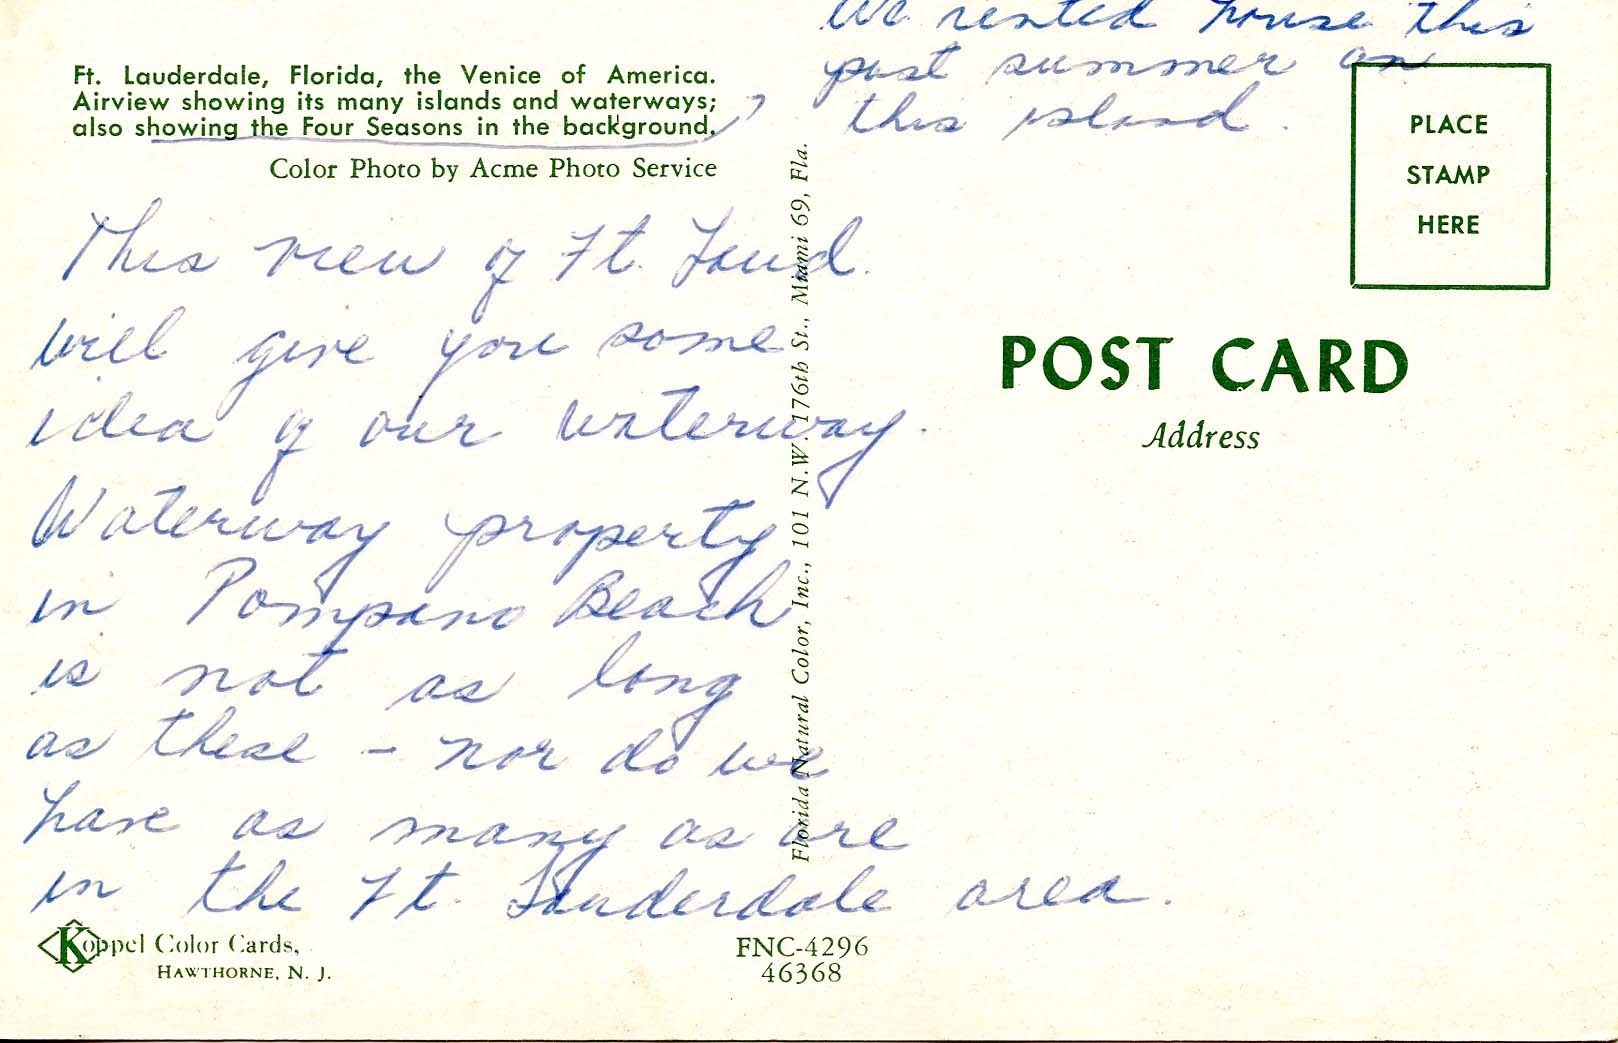 We rented house this
past summer on
this island.
Ft. Lauderdale, Florida, the Venice of America.
Airview showing its many islands and waterways;
also showing the Four Seasons in the background.
Color Photo by Acme Photo Service
This view of Ft. Laud.
will give you some
idea of our waterway.
Waterway property
in Pompano Beach
is not as long
as these - nor do we
have as many as are
in the Ft. Lauderdale area.
Koppel Color Cards,
HAWTHORNE, N. J.
Florida Natural Color, Inc., 101 N.W. 176th St., Miami 69, Fla.
FNC-4296
46368
PLACE
STAMP
HERE
POST CARD
Address